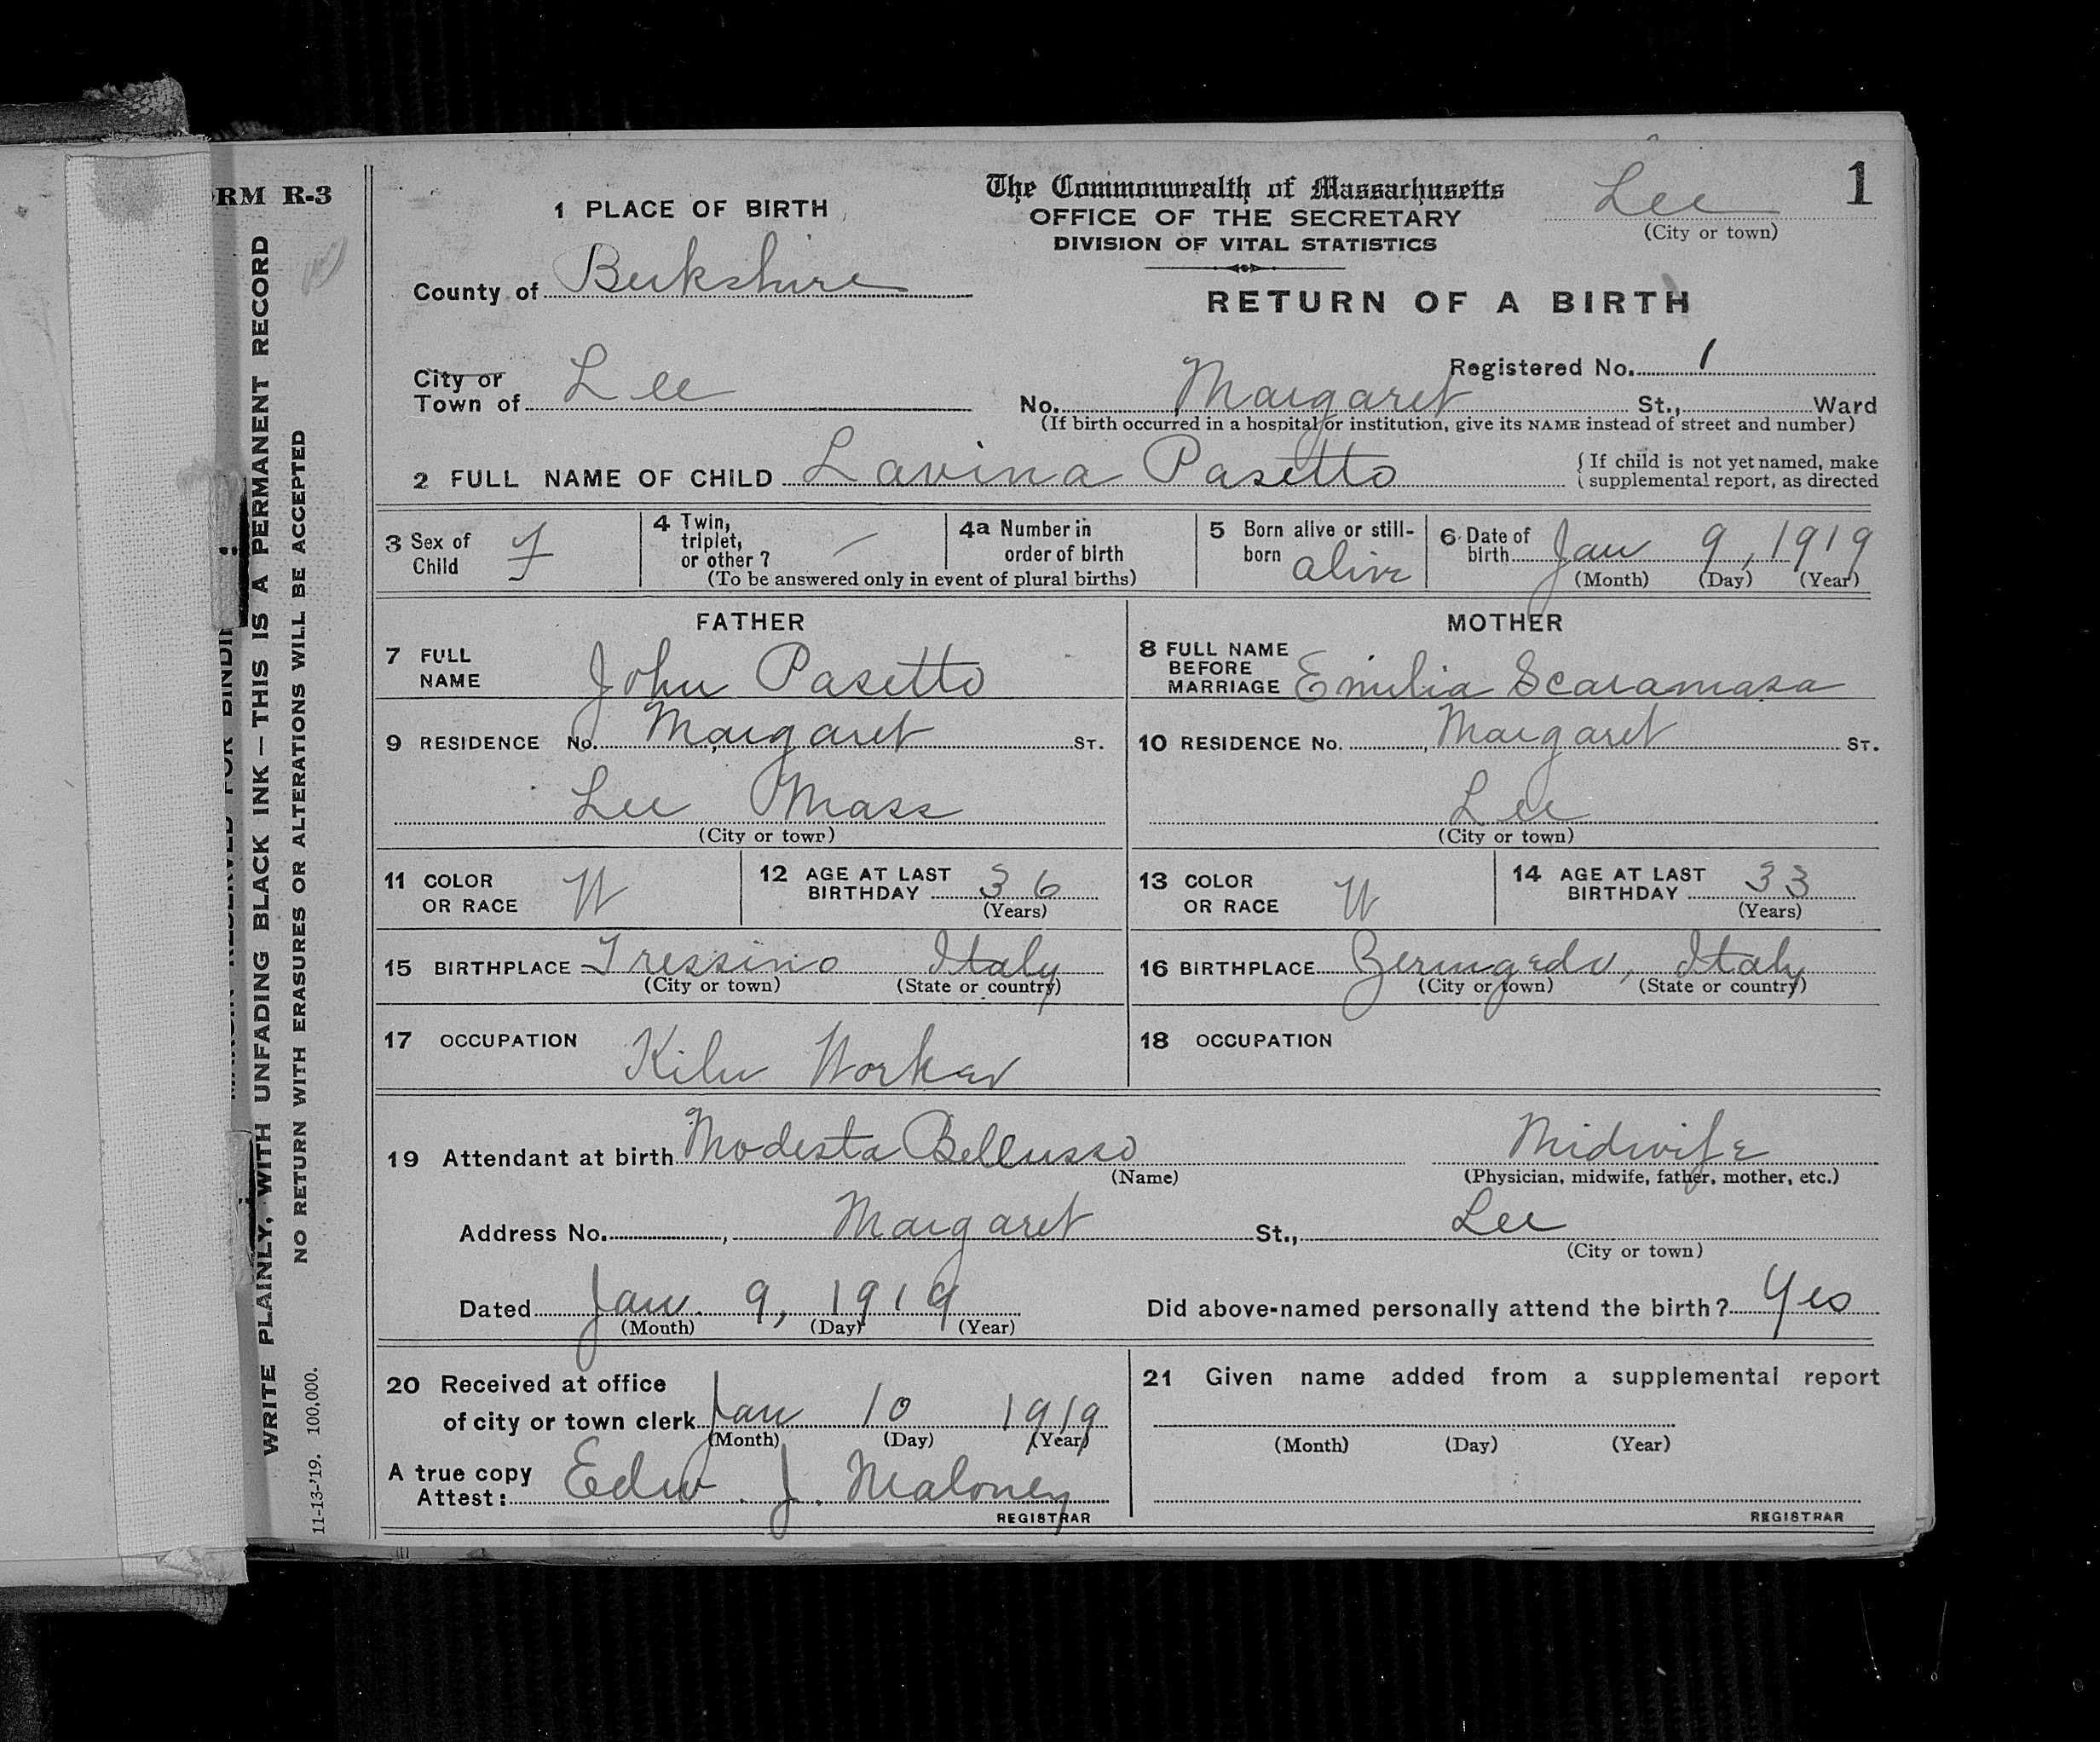 ORM R-3
WRITE PLAINLY, WITH UNFADING BLACK INK — THIS IS A PERMANENT RECORD
NO RETURN WITH ERASURES OR ALTERATIONS WILL BE ACCEPTED
11-13-'19. 100,000.
1
The Commonwealth of Massachusetts
OFFICE OF THE SECRETARY
DIVISION OF VITAL STATISTICS
Lee
(City or town)
1 PLACE OF BIRTH
County of Berkshire
RETURN OF A BIRTH
Registered No. 1
City or
Town of Lee
No. Margaret St., Ward
(If birth occurred in a hospital or institution, give its NAME instead of street and number)
2 FULL NAME OF CHILD Lavina Pasetto
{ If child is not yet named, make
supplemental report, as directed
3 Sex of Child F
4 Twin, triplet, or other? —
4a Number in order of birth
(To be answered only in event of plural births)
5 Born alive or still-born alive
6 Date of birth Jan 9, 1919
(Month) (Day) (Year)
FATHER
7 FULL NAME John Pasetto
9 RESIDENCE No. Margaret ST.
Lee Mass
(City or town)
11 COLOR OR RACE W
12 AGE AT LAST BIRTHDAY 36
(Years)
15 BIRTHPLACE Tressino Italy
(City or town) (State or country)
17 OCCUPATION Kiln Worker
MOTHER
8 FULL NAME BEFORE MARRIAGE Emilia Scaramasa
10 RESIDENCE No. , Margaret ST.
Lee
(City or town)
13 COLOR OR RACE W
14 AGE AT LAST BIRTHDAY 33
(Years)
16 BIRTHPLACE Italy
(City or town) (State or country)
18 OCCUPATION
19 Attendant at birth Modesta Bellusso Midwife
(Name) (Physician, midwife, father, mother, etc.)
Address No. , Margaret St., Lee
(City or town)
Dated Jan. 9, 1919
(Month) (Day) (Year)
Did above-named personally attend the birth? Yes
20 Received at office
of city or town clerk Jan 10 1919
(Month) (Day) (Year)
A true copy
Attest: Edw. J. Maloney
REGISTRAR
21 Given name added from a supplemental report
(Month) (Day) (Year)
REGISTRAR